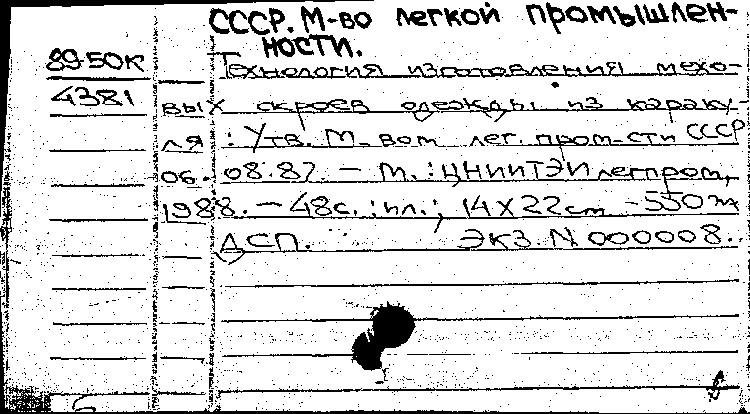 СССР. М-во легкой промышлен-
ности.
89-50К
Технология изготовления мехо-
4381
вых скроев одежды из караку-
ля : Утв. М-вом лег. пром-сти СССР
06. 08.87. - М. : ЦНИИТЭИлегпром,
1988. - 48с. : ил. ; 14 X 22 cm - 550
ДСП. ЭКЗ. N 000008.